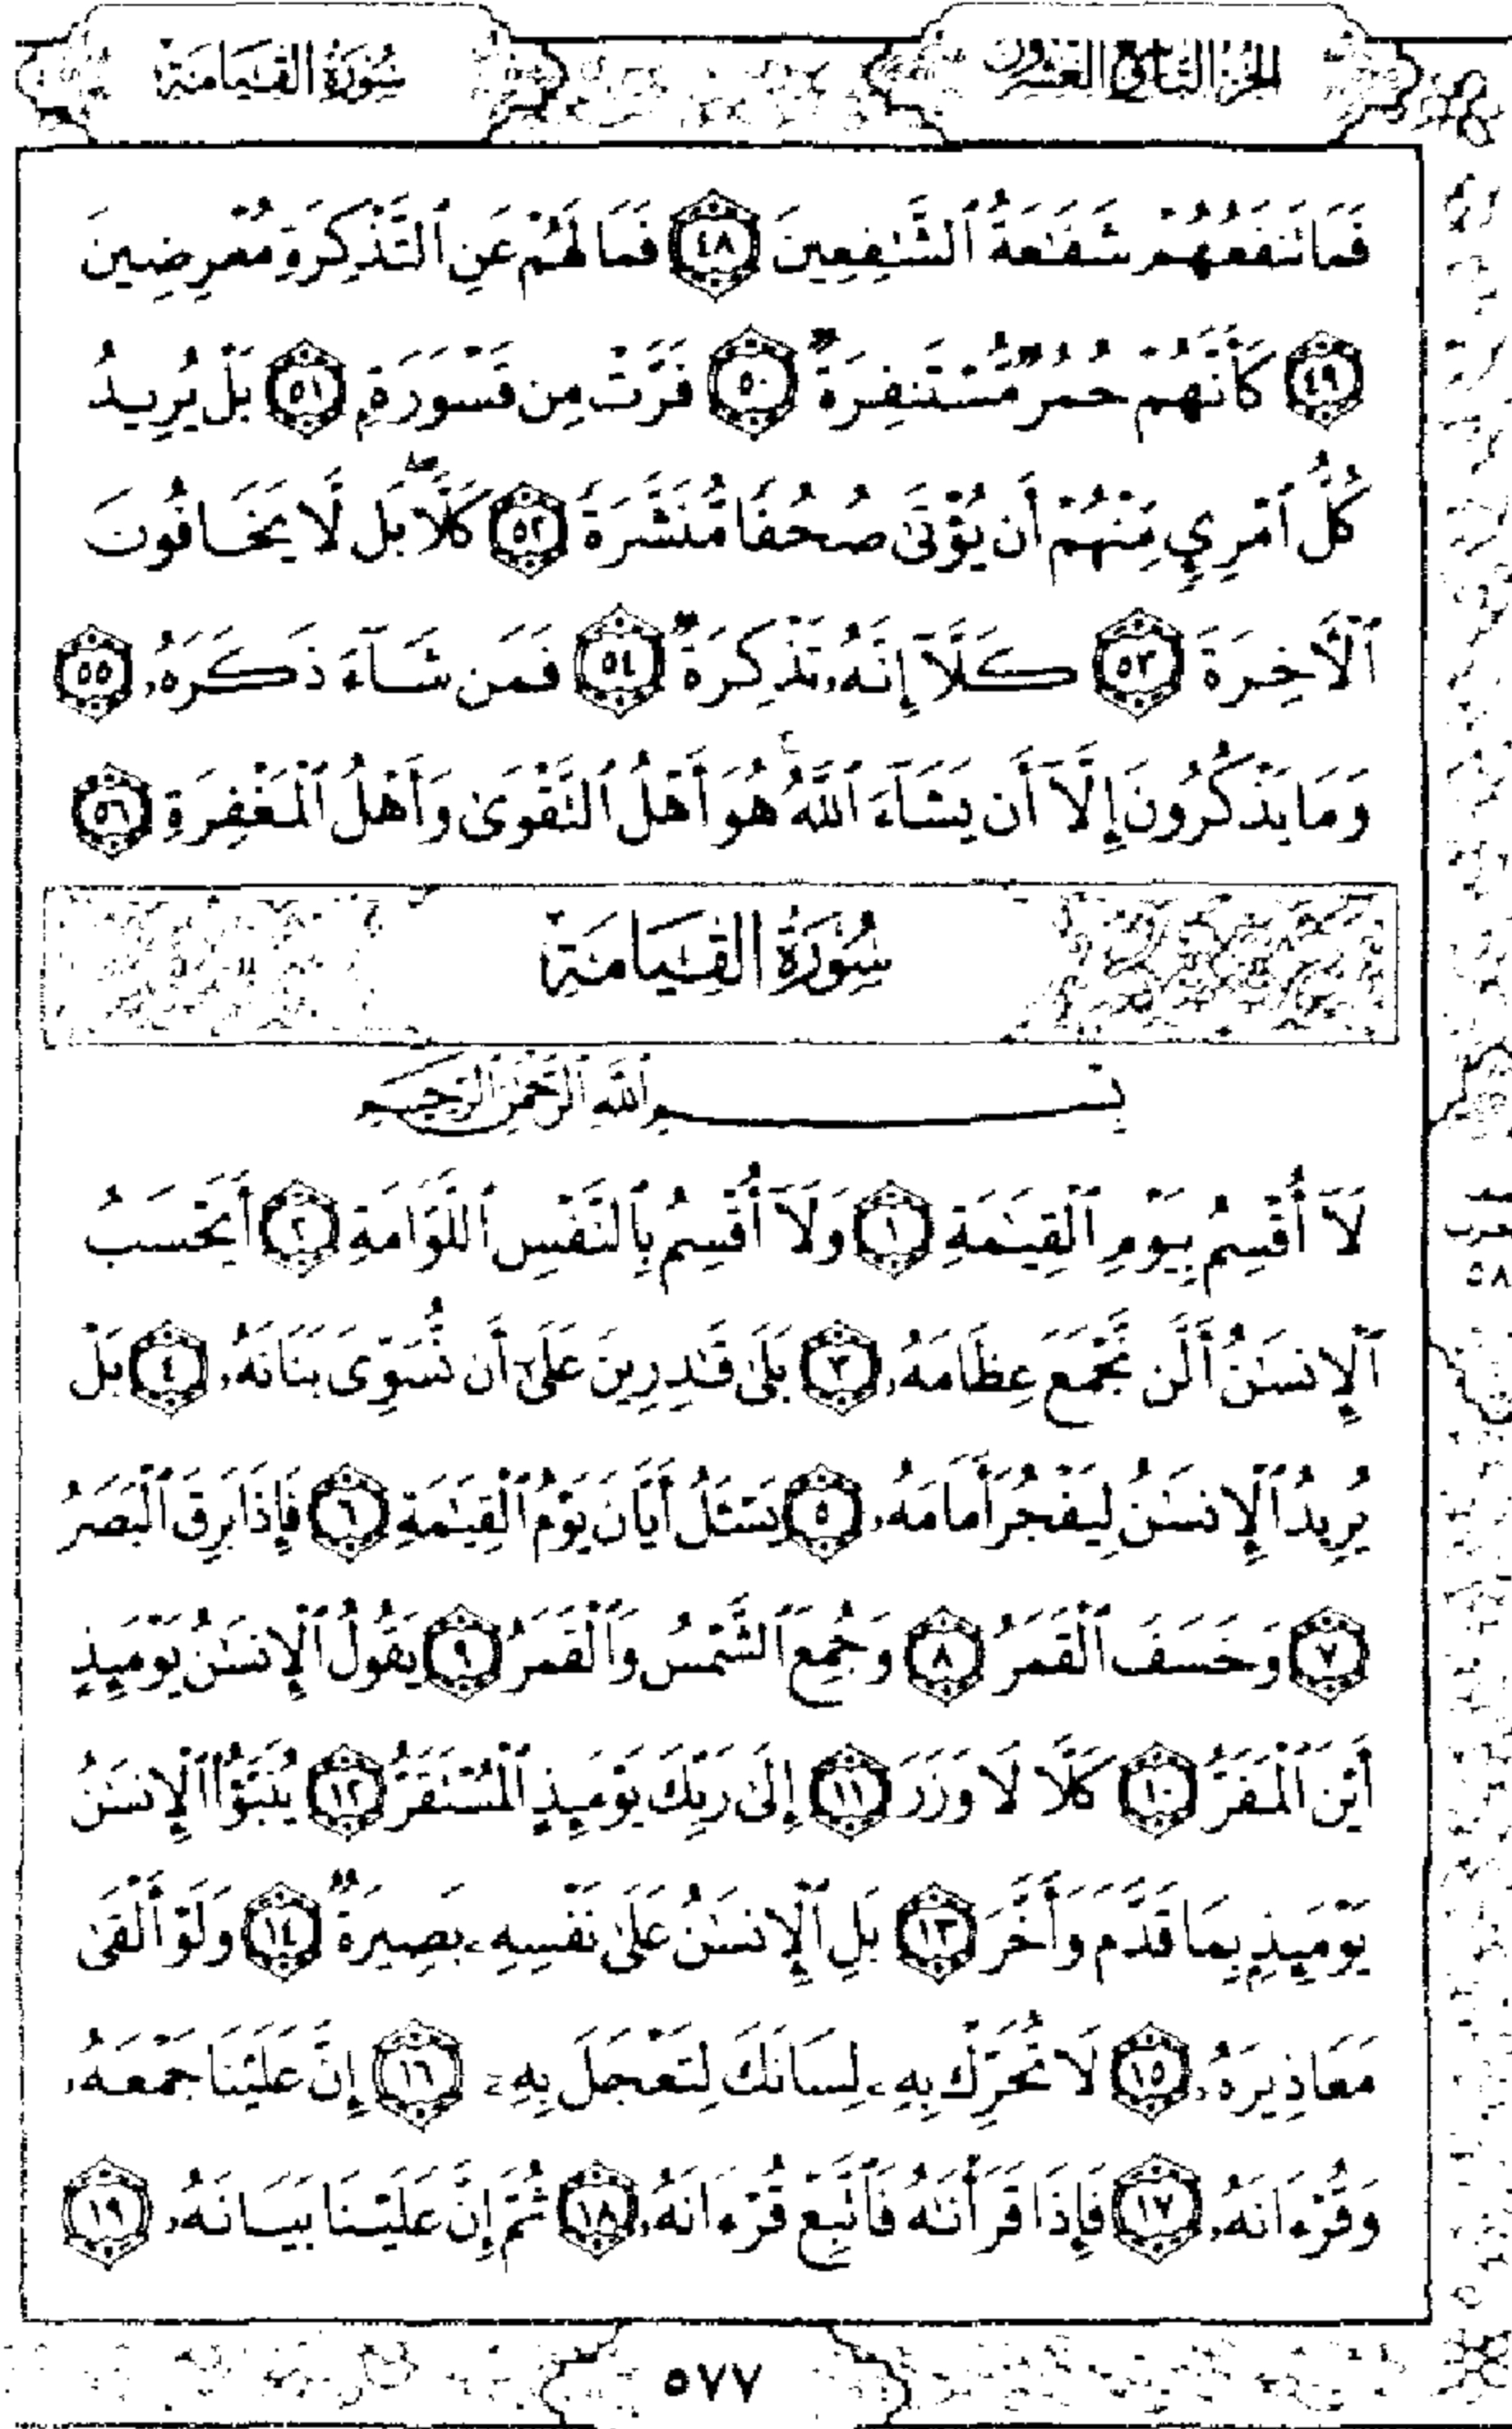 الجزء التاسع والعشرون
سُورَةُ القِيَامَةِ
فَمَا تَنفَعُهُمْ شَفَٰعَةُ ٱلشَّٰفِعِينَ ٤٨ فَمَا لَهُمْ عَنِ ٱلتَّذْكِرَةِ مُعْرِضِينَ
٤٩ كَأَنَّهُمْ حُمُرٌ مُّسْتَنفِرَةٌ ٥٠ فَرَّتْ مِن قَسْوَرَةٍۭ ٥١ بَلْ يُرِيدُ
كُلُّ ٱمْرِئٍ مِّنْهُمْ أَن يُؤْتَىٰ صُحُفًا مُّنَشَّرَةً ٥٢ كَلَّاۖ بَل لَّا يَخَافُونَ
ٱلْأَخِرَةَ ٥٣ كَلَّآ إِنَّهُۥ تَذْكِرَةٌ ٥٤ فَمَن شَآءَ ذَكَرَهُۥ ٥٥
وَمَا يَذْكُرُونَ إِلَّآ أَن يَشَآءَ ٱللَّهُۚ هُوَ أَهْلُ ٱلتَّقْوَىٰ وَأَهْلُ ٱلْمَغْفِرَةِ ٥٦
سُورَةُ القِيَامَةِ
بِسْمِ ٱللَّهِ ٱلرَّحْمَٰنِ ٱلرَّحِيمِ
لَآ أُقْسِمُ بِيَوْمِ ٱلْقِيَٰمَةِ ١ وَلَآ أُقْسِمُ بِٱلنَّفْسِ ٱللَّوَّامَةِ ٢ أَيَحْسَبُ
ٱلْإِنسَٰنُ أَلَّن نَّجْمَعَ عِظَامَهُۥ ٣ بَلَىٰ قَٰدِرِينَ عَلَىٰٓ أَن نُّسَوِّىَ بَنَانَهُۥ ٤ بَلْ
يُرِيدُ ٱلْإِنسَٰنُ لِيَفْجُرَ أَمَامَهُۥ ٥ يَسْـَٔلُ أَيَّانَ يَوْمُ ٱلْقِيَٰمَةِ ٦ فَإِذَا بَرِقَ ٱلْبَصَرُ
٧ وَخَسَفَ ٱلْقَمَرُ ٨ وَجُمِعَ ٱلشَّمْسُ وَٱلْقَمَرُ ٩ يَقُولُ ٱلْإِنسَٰنُ يَوْمَئِذٍ
أَيْنَ ٱلْمَفَرُّ ١٠ كَلَّا لَا وَزَرَ ١١ إِلَىٰ رَبِّكَ يَوْمَئِذٍ ٱلْمُسْتَقَرُّ ١٢ يُنَبَّؤُا۟ ٱلْإِنسَٰنُ
يَوْمَئِذٍۭ بِمَا قَدَّمَ وَأَخَّرَ ١٣ بَلِ ٱلْإِنسَٰنُ عَلَىٰ نَفْسِهِۦ بَصِيرَةٌ ١٤ وَلَوْ أَلْقَىٰ
مَعَاذِيرَهُۥ ١٥ لَا تُحَرِّكْ بِهِۦ لِسَانَكَ لِتَعْجَلَ بِهِۦٓ ١٦ إِنَّ عَلَيْنَا جَمْعَهُۥ
وَقُرْءَانَهُۥ ١٧ فَإِذَا قَرَأْنَٰهُ فَٱتَّبِعْ قُرْءَانَهُۥ ١٨ ثُمَّ إِنَّ عَلَيْنَا بَيَانَهُۥ ١٩
٥٨
٥٧٧